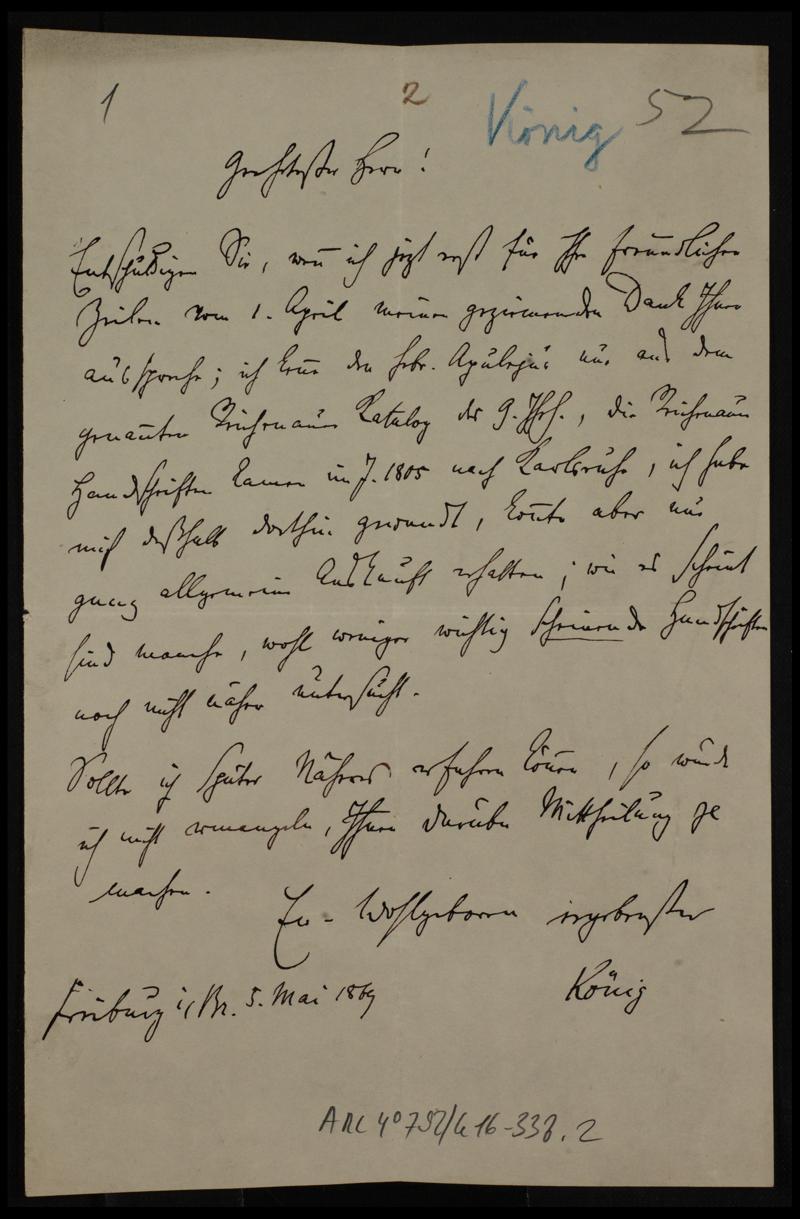 1
2
König 52
Geehrtester Herr!
Entschuldigen Sie, wenn ich jezt erst für Ihre freundlichen
Zeilen vom 1. April meinen geziemenden Dank Ihnen
ausspreche; ich kenne den hebr. Apulejus nur aus dem
genannten Reichenauer Katalog des 9. Jhrh., die Reichenauer
Handschriften kamen im J. 1805 nach Karlsruhe, ich habe
mich deßhalb dorthin gewandt, konnte aber nur
ganz allgemeine Auskunft erhalten; wie es scheint
sind manche, wohl weniger wichtig scheinende Handschriften
noch nicht näher untersucht.
Sollte ich später Näheres erfahren können, so würde
ich nicht ermangeln, Ihnen darüber Mittheilung zu
machen.
Ew. Wohlgeboren ergebenster
König
Freiburg i. Br. 5. Mai 1869
ARC 4° 792/G 16-338.2